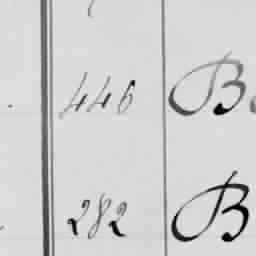 446 B
282 B